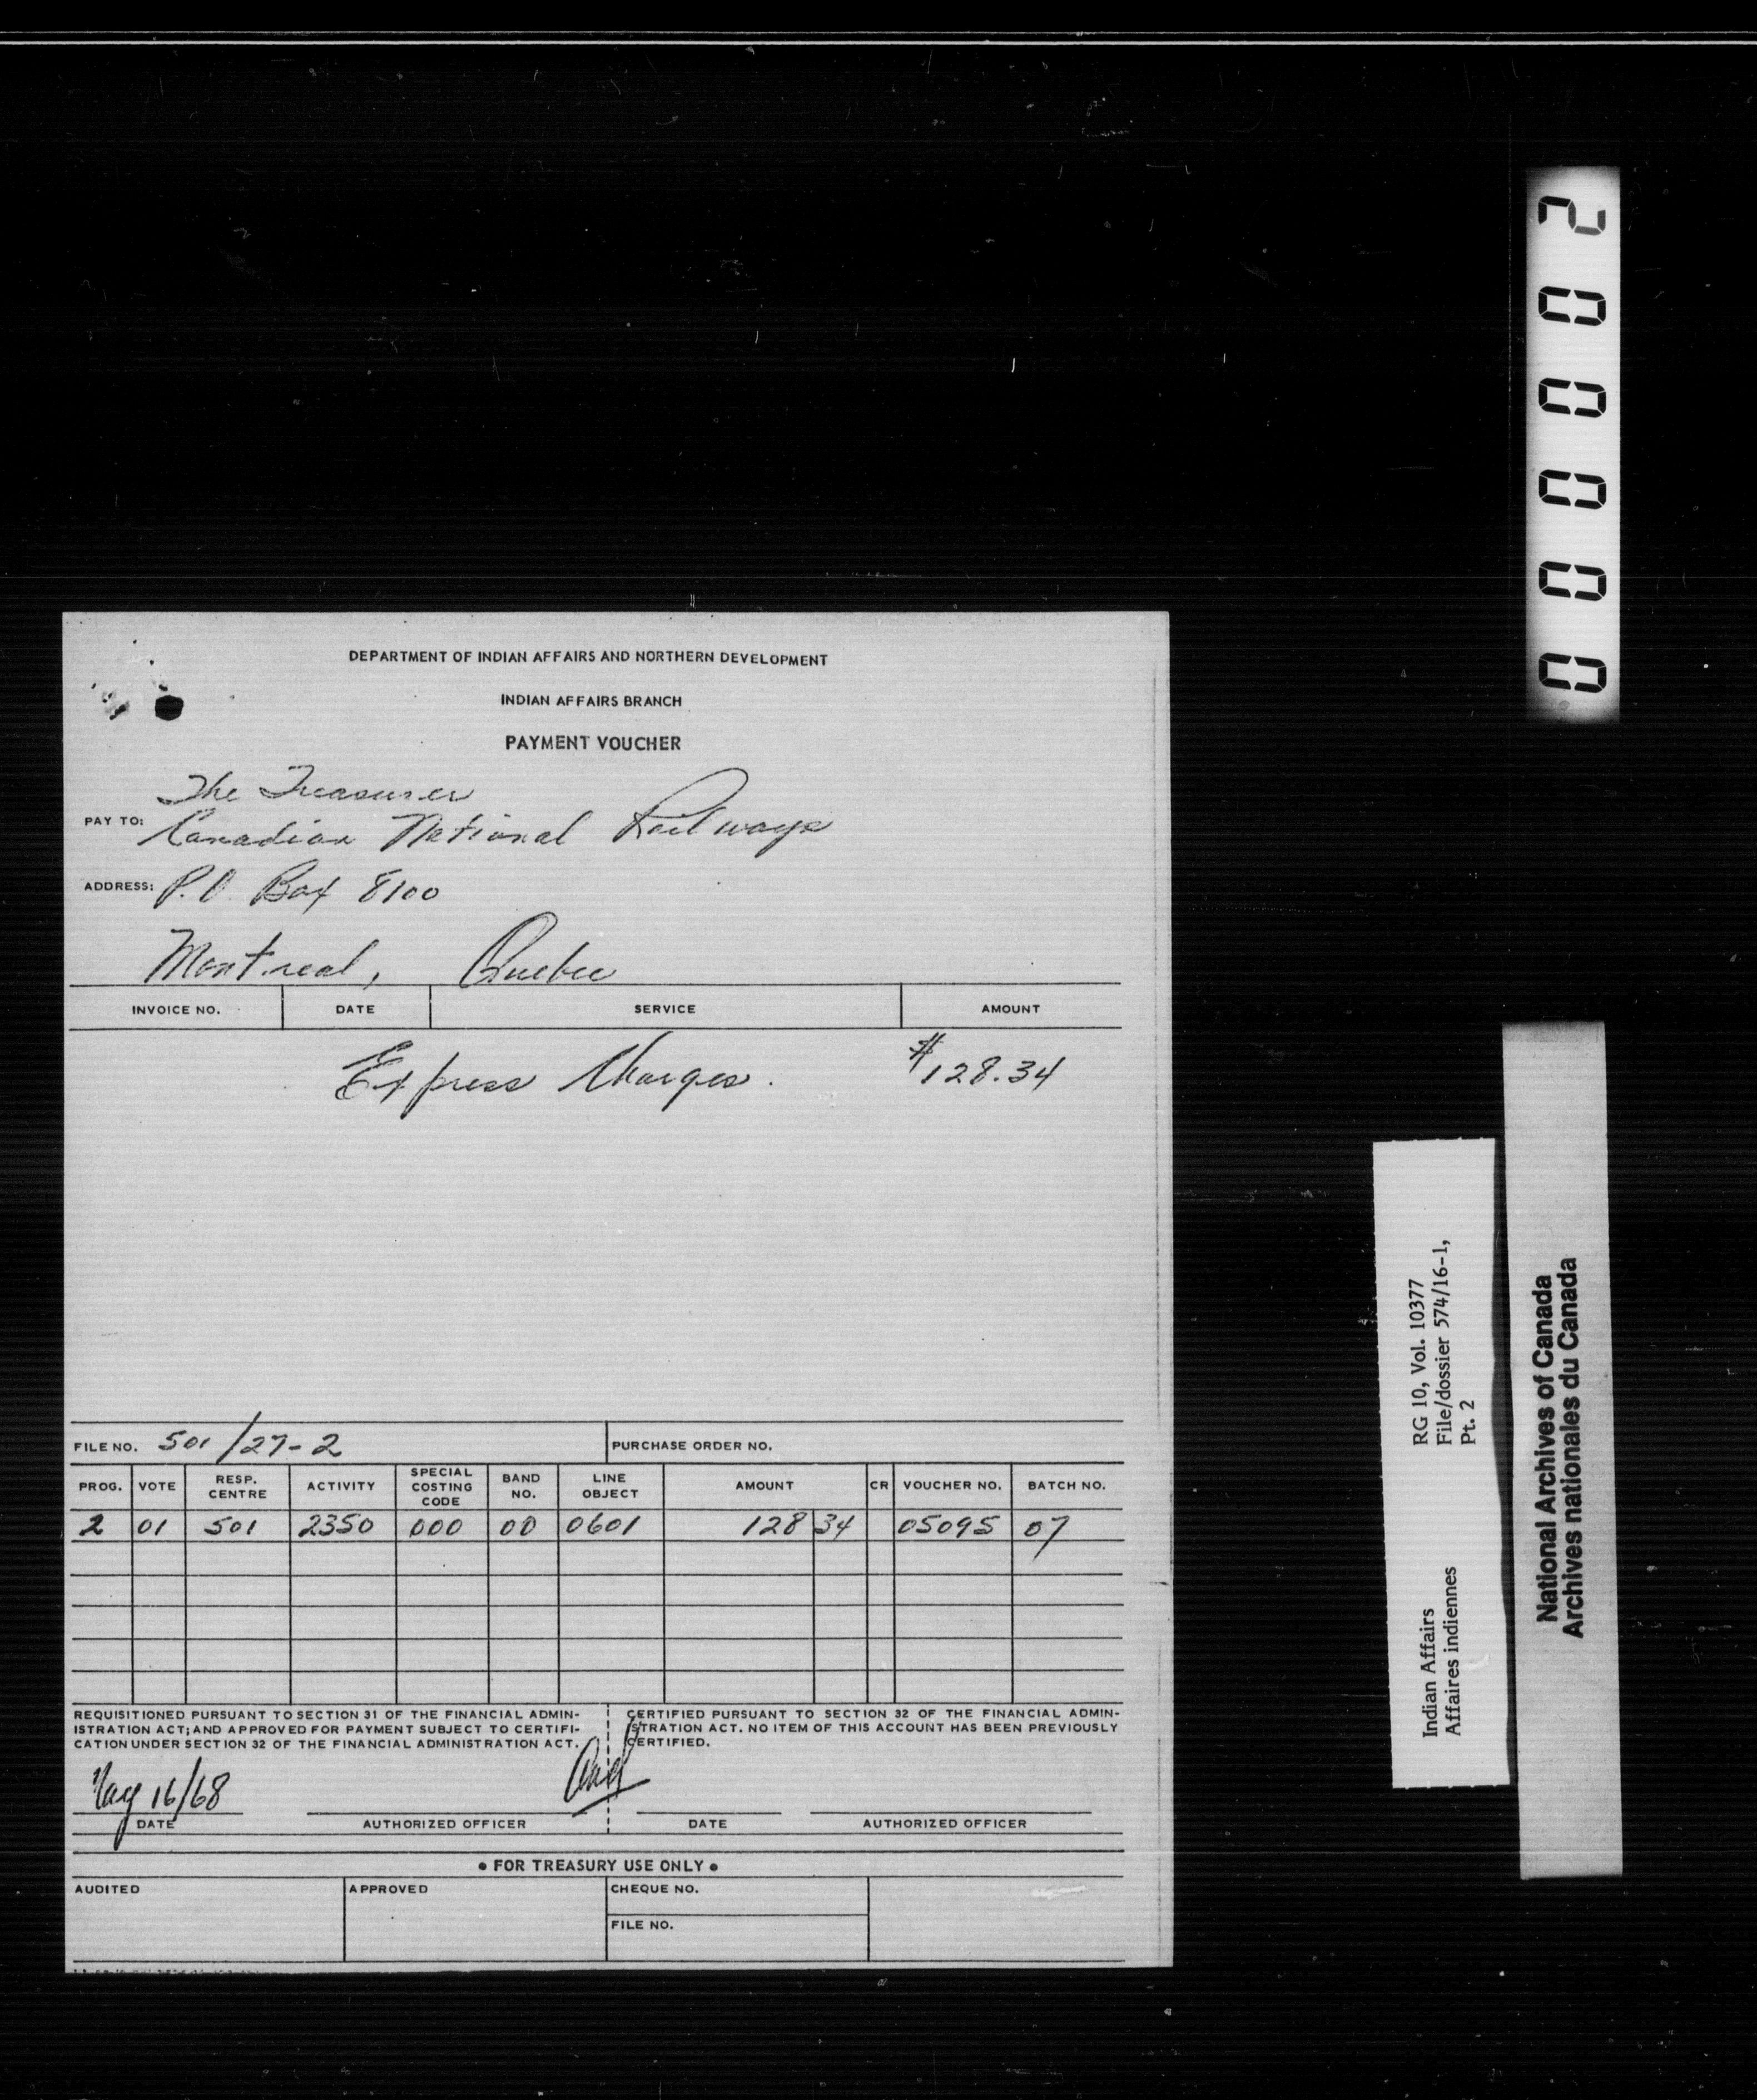 DEPARTMENT OF INDIAN AFFAIRS AND NORTHERN DEVELOPMENT
INDIAN AFFAIRS BRANCH
PAYMENT VOUCHER
The Treasurer
PAY TO: Canadian National Railways
ADDRESS: P.O. Box 8100
Montreal, Quebec
INVOICE NO. DATE SERVICE AMOUNT
Express Charges. $128.34
FILE NO. 501/27-2 PURCHASE ORDER NO.
PROG. VOTE RESP. CENTRE ACTIVITY SPECIAL COSTING CODE BAND NO. LINE OBJECT AMOUNT CR VOUCHER NO. BATCH NO.
2 01 501 2350 000 00 0601 128 34 05095 07
REQUISITIONED PURSUANT TO SECTION 31 OF THE FINANCIAL ADMIN-
ISTRATION ACT; AND APPROVED FOR PAYMENT SUBJECT TO CERTIFI-
CATION UNDER SECTION 32 OF THE FINANCIAL ADMINISTRATION ACT.
CERTIFIED PURSUANT TO SECTION 32 OF THE FINANCIAL ADMIN-
ISTRATION ACT. NO ITEM OF THIS ACCOUNT HAS BEEN PREVIOUSLY
CERTIFIED.
May 16/68
DATE AUTHORIZED OFFICER DATE AUTHORIZED OFFICER
• FOR TREASURY USE ONLY •
AUDITED APPROVED CHEQUE NO.
FILE NO.
000002
RG 10, Vol. 10377
File/dossier 574/16-1,
Pt. 2
Indian Affairs
Affaires indiennes
National Archives of Canada
Archives nationales du Canada